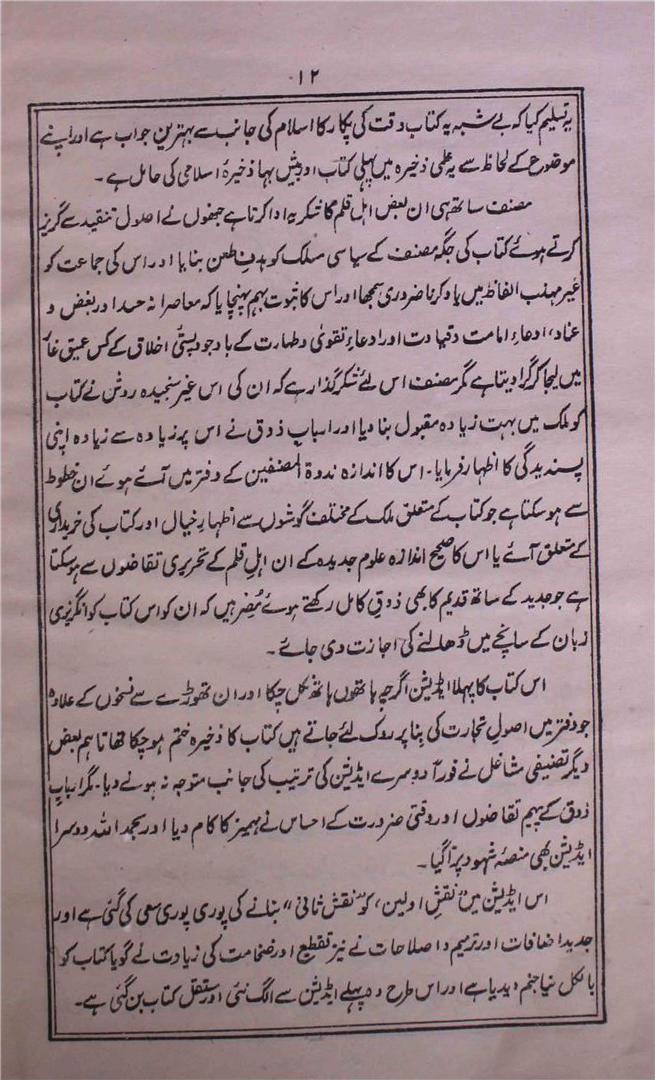 ۱۲
یہ تسلیم کیا کہ بے شبہ یہ کتاب وقت کی پکار کا اسلام کی جانب سے بہترین جواب ہے اور اپنے
موضوع کے لحاظ سے یہ علمی ذخیرہ میں پہلی کتاب اور بیش بہا ذخیرۂ اسلامی کی حامل ہے۔
مصنف ساتھ ہی ان بعض اہل قلم کا شکریہ ادا کرتا ہے جنھوں نے اصول تنقید سے گریز
کرتے ہوئے کتاب کی جگہ مصنف کے سیاسی مسلک کو ہدفِ طعن بنایا اور اس کی جماعت کو
غیر مہذب الفاظ میں یاد کرنا ضروری سمجھا اور اس کا ثبوت بہم پہنچایا کہ معاصرانہ حسد اور بغض و
عناد، ادعاءِ امامت و قیادت اور ادعاءِ تقویٰ و طہارت کے باوجود پستیٔ اخلاق کے کس عمیق غار
میں لیجا کر گرا دیتا ہے مگر مصنف اس لئے شکر گذار ہے کہ ان کی اس غیر سنجیدہ روش نے کتاب
کو ملک میں بہت زیادہ مقبول بنا دیا اور اربابِ ذوق نے اس پر زیادہ سے زیادہ اپنی
پسندیدگی کا اظہار فرمایا۔ اس کا اندازہ ندوۃ المصنفین کے دفتر میں آئے ہوئے ان خطوط
سے ہو سکتا ہے جو کتاب کے متعلق ملک کے مختلف گوشوں سے اظہارِ خیال اور کتاب کی خریداری
کے متعلق آئے یا اس کا صحیح اندازہ علوم جدیدہ کے ان اہلِ قلم کے تحریری تقاضوں سے ہو سکتا
ہے جو جدید کے ساتھ قدیم کا بھی ذوقِ کامل رکھتے ہوئے مُصر ہیں کہ ان کو اس کتاب کو انگریزی
زبان کے سانچے میں ڈھالنے کی اجازت دی جائے۔
اس کتاب کا پہلا ایڈیشن اگرچہ ہاتھوں ہاتھ نکل چکا اور ان تھوڑے سے نسخوں کے علاوہ
جو دفتر میں اصولِ تجارت کی بنا پر روک لئے جاتے ہیں کتاب کا ذخیرہ ختم ہو چکا تھا تاہم بعض
دیگر تصنیفی مشاغل نے فوراً دوسرے ایڈیشن کی ترتیب کی جانب متوجہ نہ ہونے دیا۔ مگر اربابِ
ذوق کے پیہم تقاضوں اور وقتی ضرورت کے احساس نے مہمیز کا کام دیا اور بحمد اللہ دوسرا
ایڈیشن بھی منصۂ شہود پر آگیا۔
اس ایڈیشن میں ”نقشِ اولین“ کو ”نقش ثانی“ بنانے کی پوری پوری سعی کی گئی ہے اور
جدید اضافات اور ترمیم و اصلاحات نے نیز تقطیع اور ضخامت کی زیادت نے گویا کتاب کو
بالکل نیا جنم دیدیا ہے اور اس طرح وہ پہلے ایڈیشن سے الگ نئی اور مستقل کتاب بن گئی ہے۔